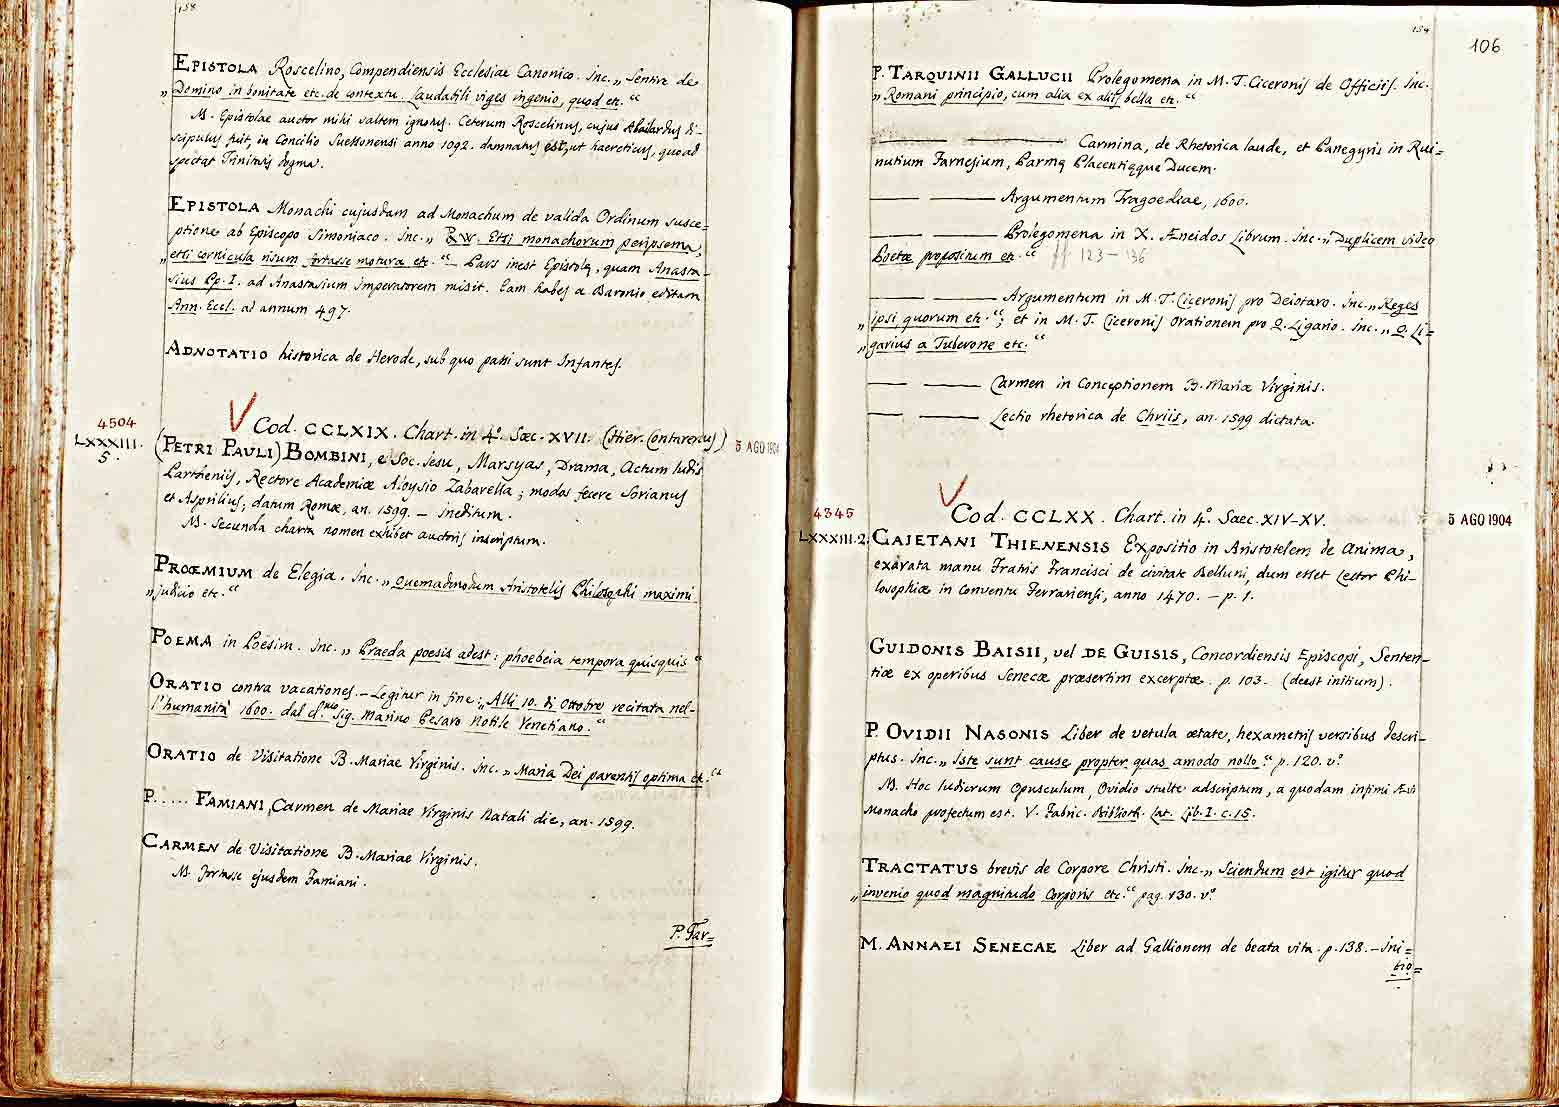 158
EPISTOLA Roscelino, Compendiensis Ecclesiae Canonico. Inc. „ Sentire de
„ Domino in bonitate etc. de contextu. Laudabili viges ingenio, quod etc. “
N. Epistolae auctor mihi saltem ignotus. Ceterum Roscelinus, cujus Abailardus di-
scipulus fuit, in Concilio Suessonensi anno 1092. damnatus est, ut haereticus, quoad
spectat Trinitatis dogma.
EPISTOLA Monachi cujusdam ad Monachum de valida Ordinum susce-
ptione ab Episcopo Simoniaco. Inc. „ Etsi monachorum peripsema,
„ etsi cornicula risum fortasse motura etc. “ — Pars inest Epistolę, quam Anasta-
sius Pp. I. ad Anastasium Imperatorem misit. Eam habes a Baronio editam
Ann. Eccl. ad annum 497.
ADNOTATIO historica de Herode, sub quo passi sunt Infantes.
4504
LXXXIII.
5.
V Cod. CCLXIX. Chart. in 4º. Sæc. XVII. (Hier. Contarenus)
5 AGO 1904
(PETRI PAULI) BOMBINI, e Soc. Jesu, Marsyas, Drama, Actum ludis
Partheniis, Rectore Academiæ Aloysio Zabarella; modos fecere Sorianus
et Asprilius; datum Romæ, an. 1599. — ineditum.
N. Secunda charta nomen exhibet auctoris inscriptum.
PROŒMIUM de Elegia. Inc. „ Quemadmodum Aristotelis Philosophi maximi
„ judicio etc. “
POEMA in Poësim. Inc. „ Praeda poesis adest: phoebeia tempora quisquis “
ORATIO contra vacationes. — Legitur in fine: „ Alli 10. di Ottobre recitata nel-
l'humanità 1600. dal cl.mo Sig. Marino Pesaro Nobile Venetiano. “
ORATIO de Visitatione B. Mariae Virginis. Inc. „ Maria Dei parentis optima etc. “
P. .... FAMIANI, Carmen de Mariae Virginis Natali die, an. 1599.
CARMEN de Visitatione B. Mariae Virginis.
N. Fortasse ejusdem Famiani.
P. Tar=
106
P. TARQUINII GALLUCII Prolegomena in M. T. Ciceronis de Officiis. Inc.
„ Romani principio, cum alia ex aliis bella etc. “
——— ——— Carmina, de Rhetorica laude, et Panegyris in Rai=
nutium Farnesium, Parmę Placentięque Ducem.
——— ——— Argumentum Tragoediae, 1600.
——— ——— Prolegomena in X. Æneidos Librum. Inc. „ Duplicem video
Poetæ propositum etc. “ ff 123-136
——— ——— Argumentum in M. T. Ciceronis pro Deiotaro. Inc. „ Reges
„ ipsi quorum etc. “; et in M. T. Ciceronis Orationem pro Q. Ligario. Inc. „ Q. Li=
„ garius a Tuberone etc. “
——— ——— Carmen in Conceptionem B. Mariæ Virginis.
——— ——— Lectio rhetorica de Chriis, an. 1599 dictata.
4345
LXXXIII.2.
V Cod. CCLXX. Chart. in 4º. Sæc. XIV-XV.
5 AGO 1904
GAJETANI THIENENSIS Expositio in Aristotelem de Anima,
exarata manu Fratris Francisci de civitate Belluni, dum esset Lector Phi-
losophiæ in Conventu Ferrariensi, anno 1470. — p. 1.
GUIDONIS BAISII, vel DE GUISIS, Concordiensis Episcopi, Senten-
tiæ ex operibus Senecæ præsertim excerptæ. p. 103. (deest initium).
P. OVIDII NASONIS Liber de vetula ætate, hexametris versibus descri-
ptus. Inc. „ Iste sunt cause propter quas amodo nollo “ p. 120. vº.
N. Hoc ludicrum Opusculum, Ovidio stulte adscriptum, a quodam infimi Ævi
Monacho profectum est. V. Fabric. Biblioth. Lat. Lib. I. c. 15.
TRACTATUS brevis de Corpore Christi. Inc. „ Sciendum est igitur quod
„ invenio quod magnitudo Corporis etc. “ pag. 130. vº.
M. ANNAEI SENECAE Liber ad Gallionem de beata vita. p. 138. — Ini=
tio=